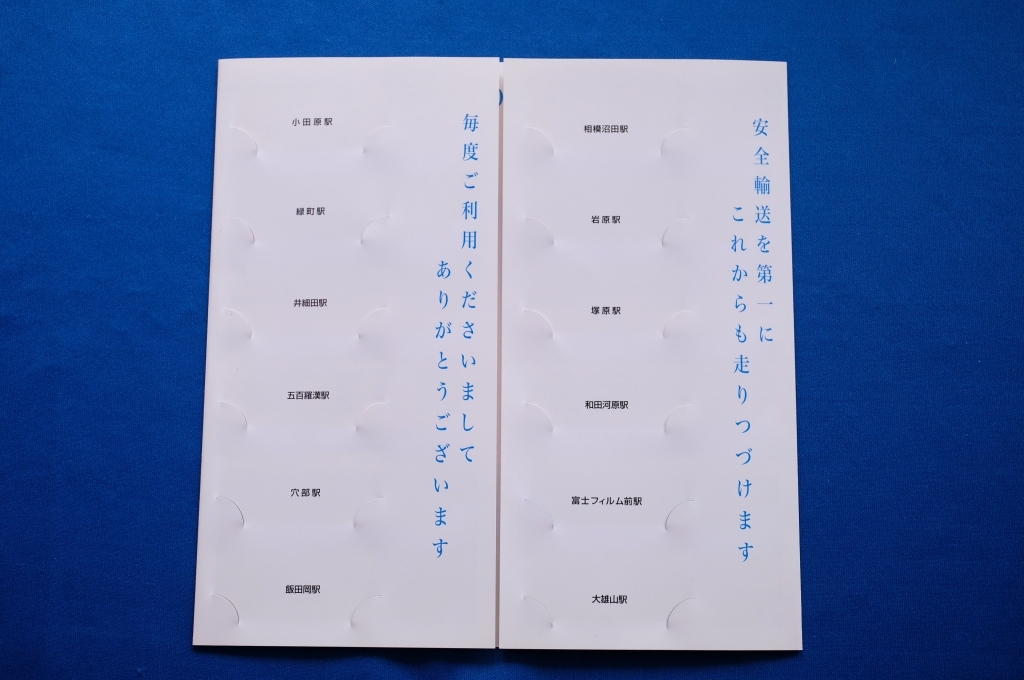 小田原駅
緑町駅
井細田駅
五百羅漢駅
穴部駅
飯田岡駅
毎度ご利用くださいまして
ありがとうございます
相模沼田駅
岩原駅
塚原駅
和田河原駅
富士フィルム前駅
大雄山駅
安全輸送を第一に
これからも走りつづけます